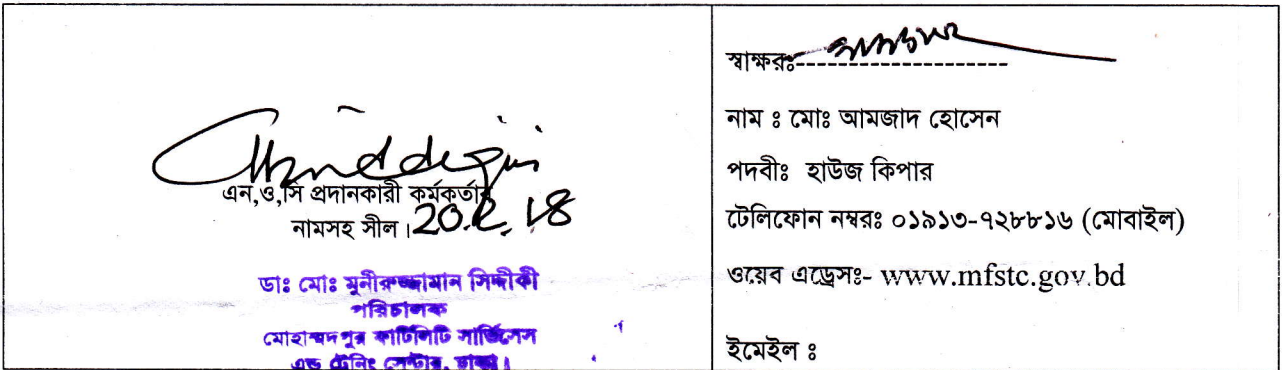 এন,ও,সি প্রদানকারী কর্মকর্তার
নামসহ সীল।
ডাঃ মোঃ মুনীরুজ্জামান সিদ্দীকী
পরিচালক
মোহাম্মদপুর ফার্টিলিটি সার্ভিসেস
এন্ড ট্রেনিং সেন্টার, ঢাকা।
স্বাক্ষরঃ--------------------
নাম ঃ মোঃ আমজাদ হোসেন
পদবীঃ হাউজ কিপার
টেলিফোন নম্বরঃ ০১৯১৩-৭২৮৮১৬ (মোবাইল)
ওয়েব এড্রেসঃ- www.mfstc.gov.bd
ইমেইল ঃ